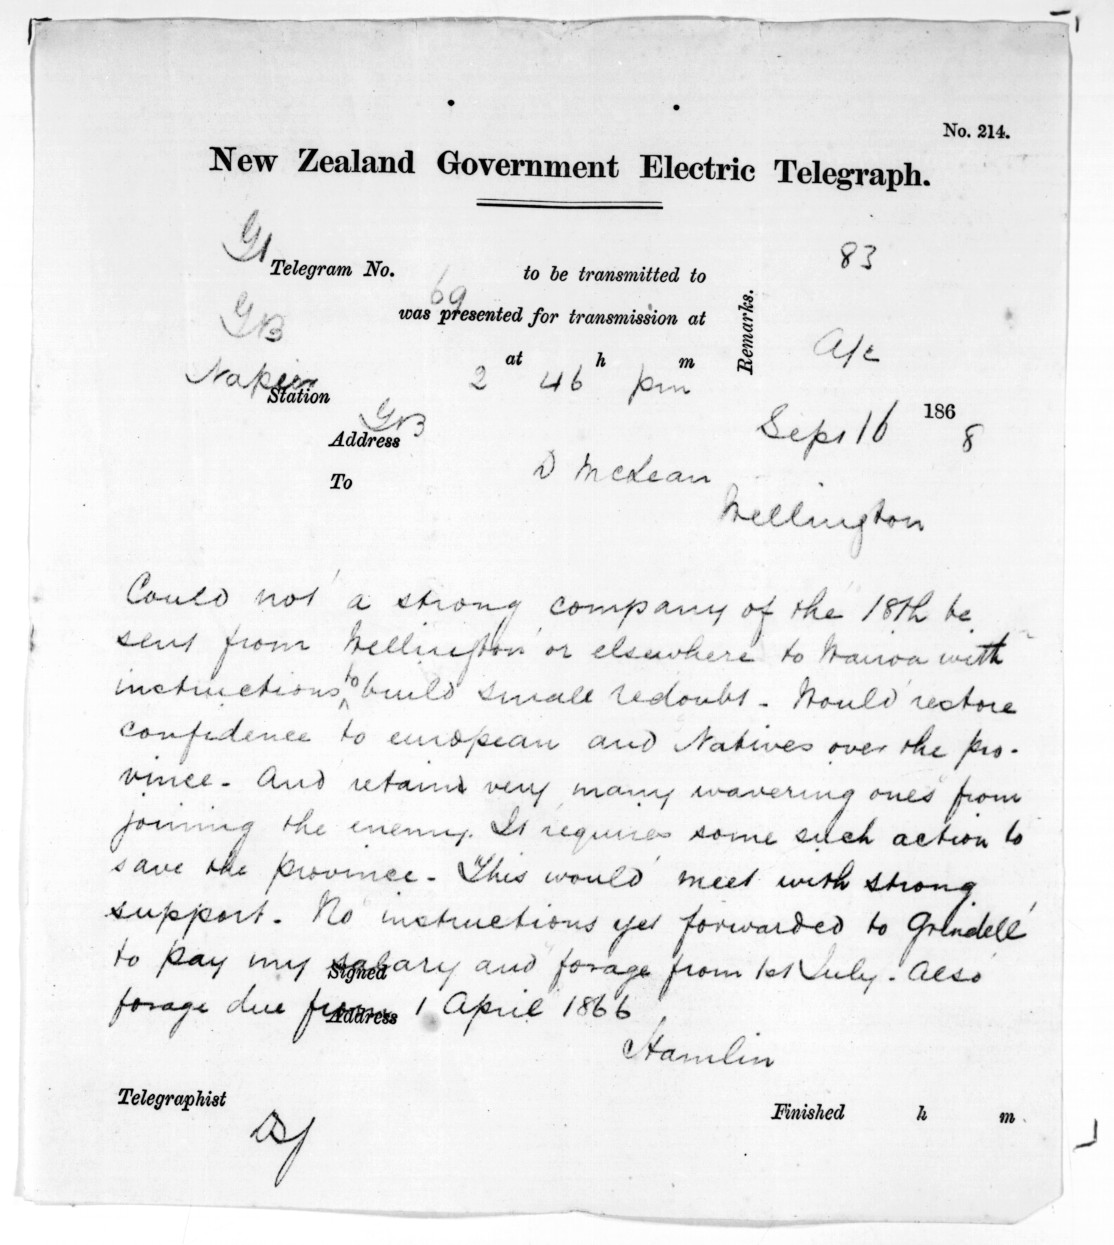 No. 214.
New Zealand Government Electric Telegraph.
Telegram No. 69 to be transmitted to
83
was presented for transmission at
Remarks.
at h m
Napier 2 46 pm
Station
Sept 16 1868
Address
To D McLean
Wellington
Could not a strong company of the 18th be
sent from Wellington or elsewhere to Wairoa with
instructions to build small redoubt - Would restore
confidence to european and Natives over the pro-
vince - And retain very many wavering ones from
joining the enemy. It requires some such action to
save the province - This would meet with strong
support - No instructions yet forwarded to Grindell
to pay my salary and forage from 1st July - also
Signed
forage due from 1 April 1866
Address
Hamlin
Telegraphist
Finished h m